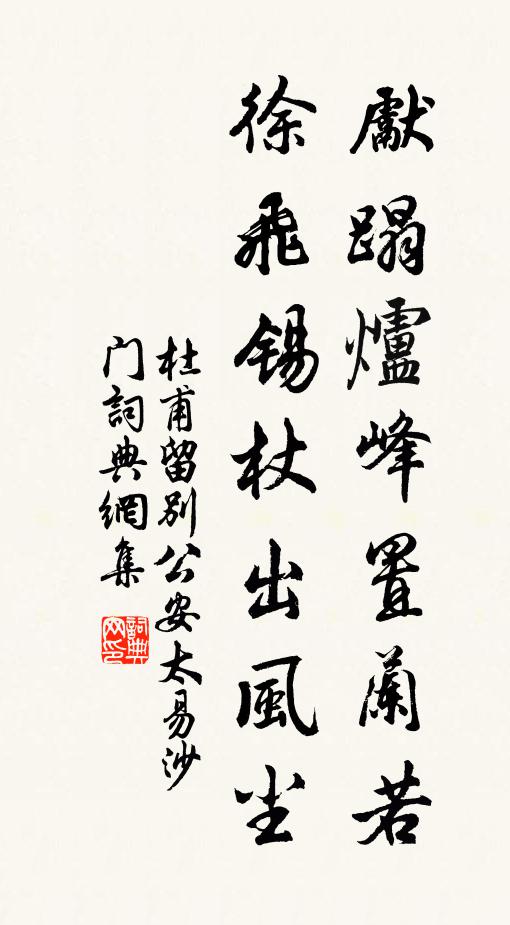 獻蹋爐峰置蘭若
徐飛錫杖出風尘
杜甫留別公安太易沙
门詞典網集
詞典网印